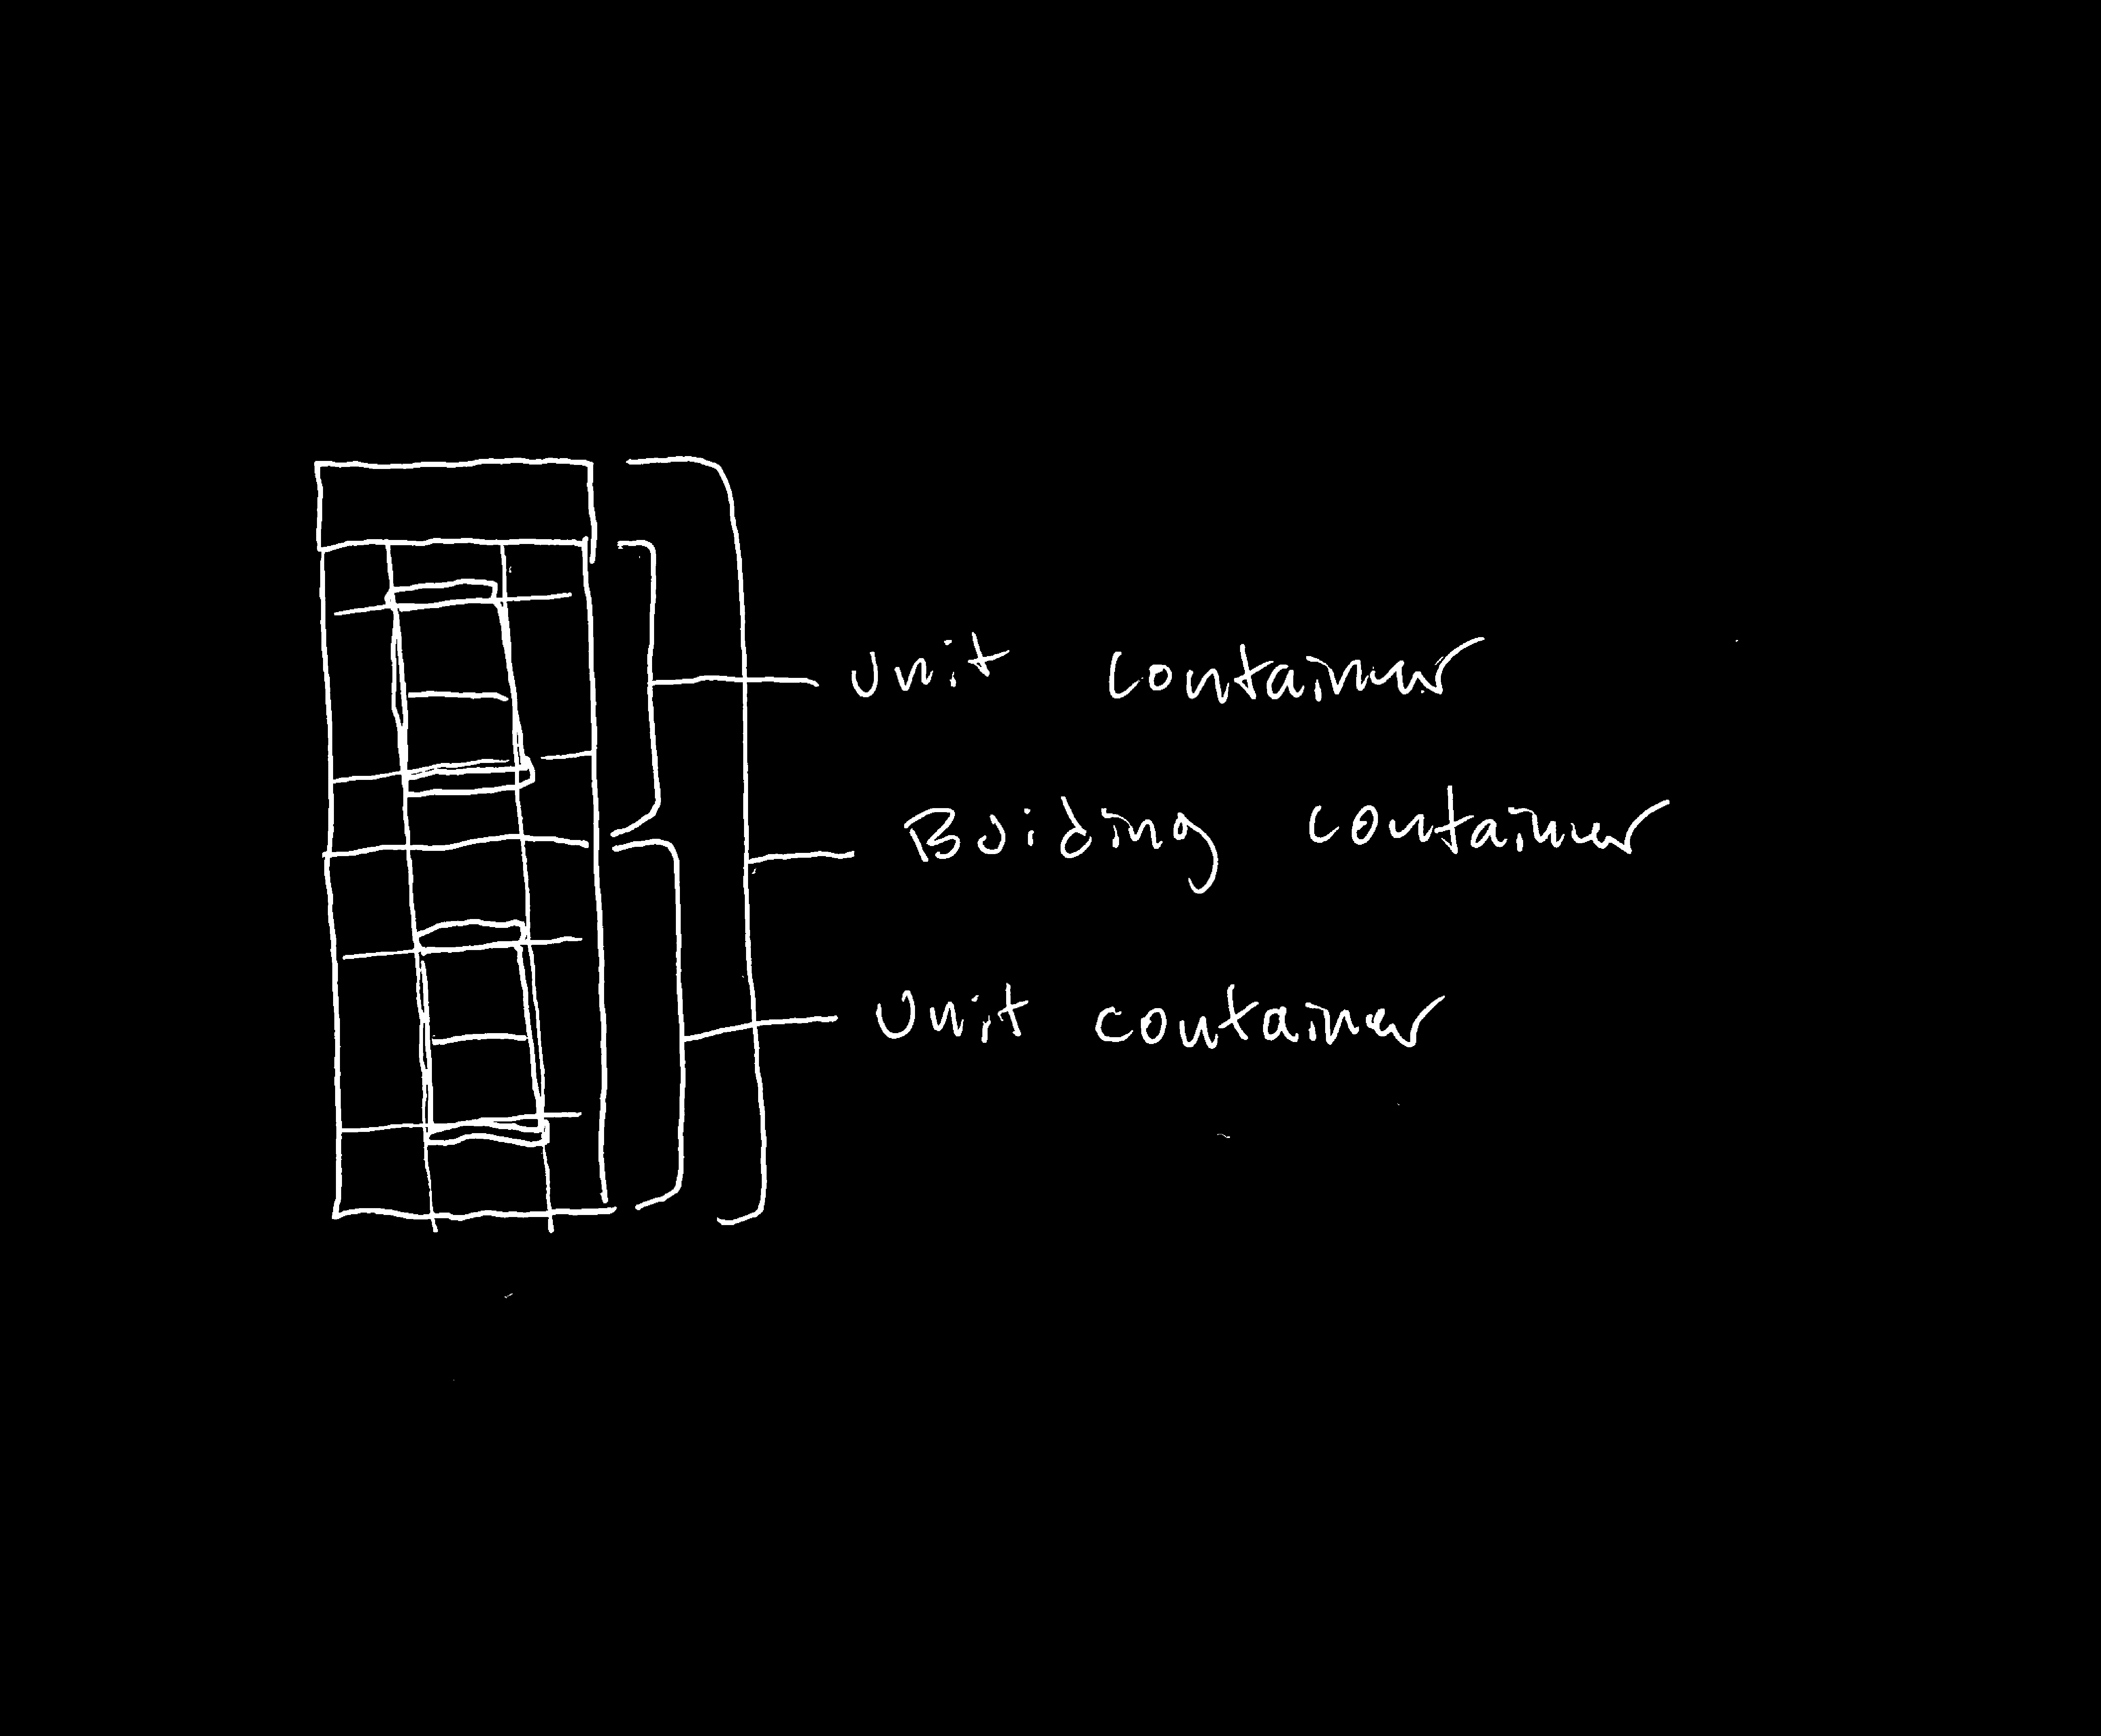 Unit container
Building container
Unit container